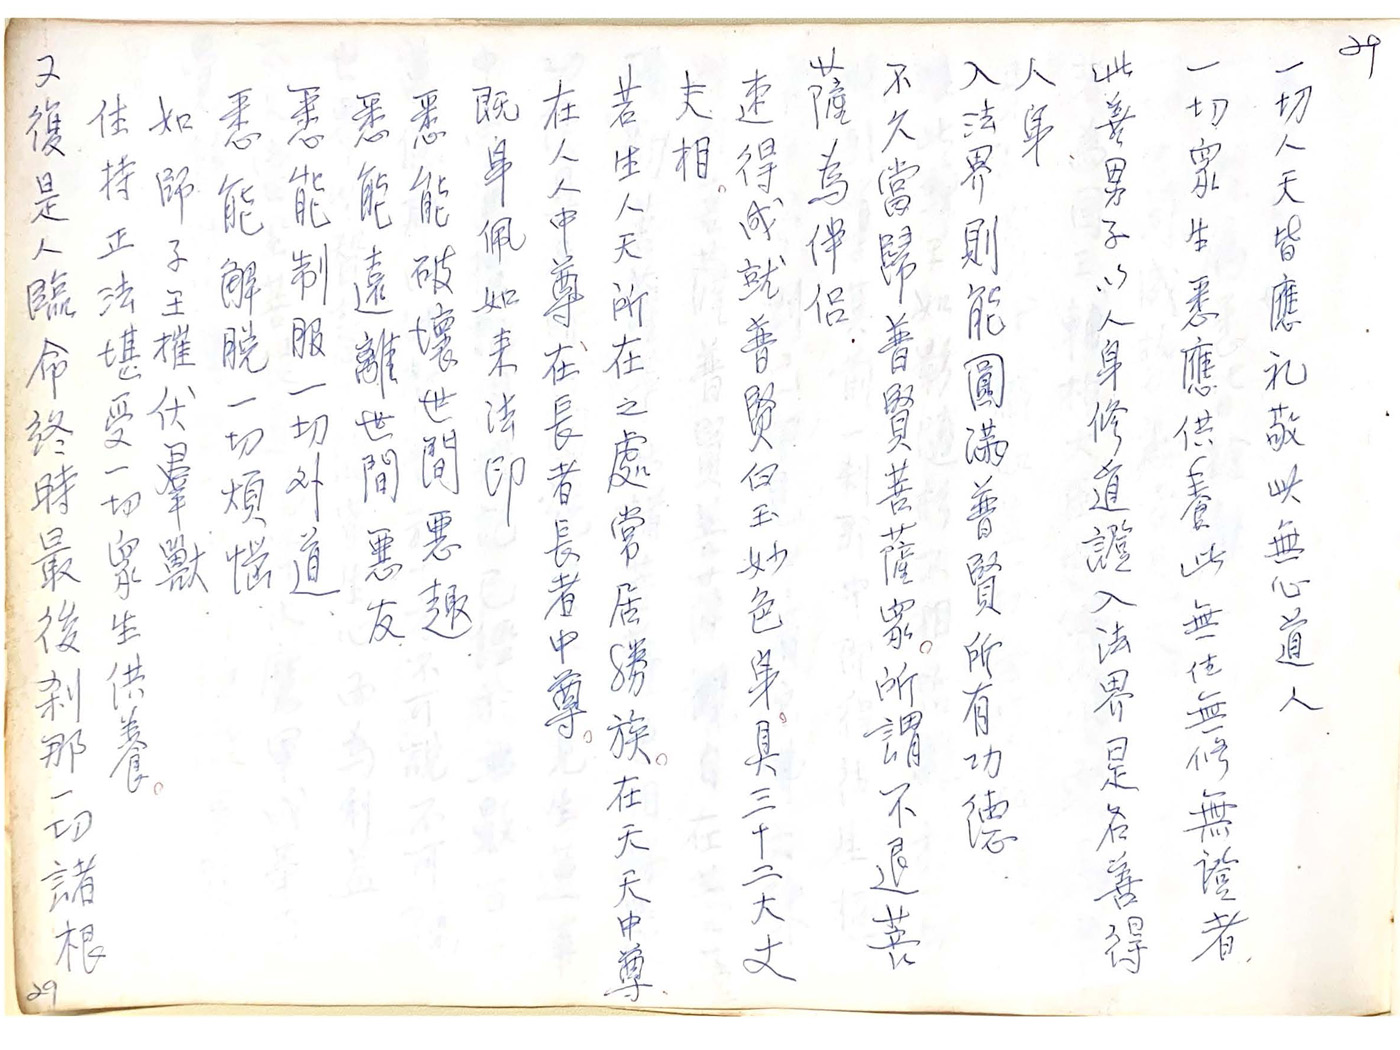 29
一切人天皆應礼敬此無心道人
一切眾生悉應供養此無住無修無證者.
此善男子以人身修道證入法界是名善得
人身.
入法界則能圓滿普賢所有功德.
不久當歸普賢菩薩眾。所謂不退菩
薩為伴侶.
速得成就普賢白玉妙色身。具三十二大丈
夫相。
若生人天所在之處常居勝族。在天天中尊.
在人人中尊在長者長者中尊。
既身佩如来法印
悉能破壞世間惡趣
悉能遠離世間惡友
悉能制服一切外道.
悉能解脫一切煩惱
如師子王摧伏羣獸.
住持正法堪受一切眾生供養。
又復是人臨命終時最後刹那一切諸根
29